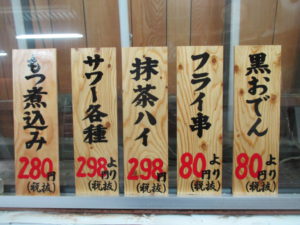 もつ煮込み
280円
(税抜)
サワー各種
298円より
(税抜)
抹茶ハイ
298円
(税抜)
フライ串
80円より
(税抜)
黒おでん
80円より
(税抜)